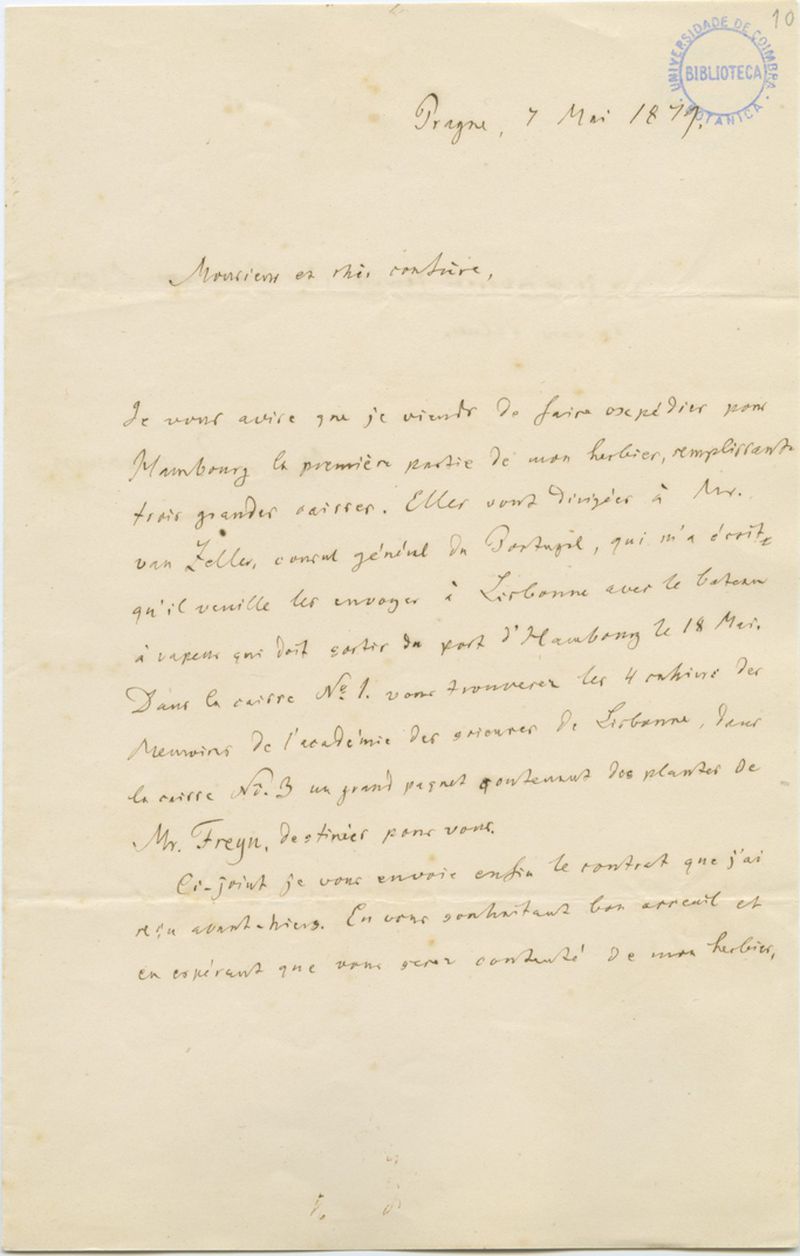 10
UNIVERSIDADE DE COIMBRA
BIBLIOTECA
BOTANICA
Prague, 7 Mai 1879.
Monsieur et cher confrère,
Je vous avise que je viends de faire expédier pour
Hambourg la première partie de mon herbier, remplissant
trois grandes caisses. Elles vont dirigées à Mr.
van Zeller, consul général du Portugal, qui m'a écrit,
qu'il veuille les envoyer à Lisbonne avec le bateau
à vapeur qui doit sortir du port d'Hambourg le 18 Mai.
Dans la caisse No 1. vous trouverez les 4 cahiers des
Memoires de l'académie des sciences de Lisbonne, dans
la caisse No. 3 un grand paquet contenant des plantes de
Mr. Freyn, destinées pour vous.
Ci-joint je vous envoie enfin le contrat que j'ai
reçu avant-hier. En vous souhaitant bon acceuil et
en espérant que vous serez contenté de mon herbier,